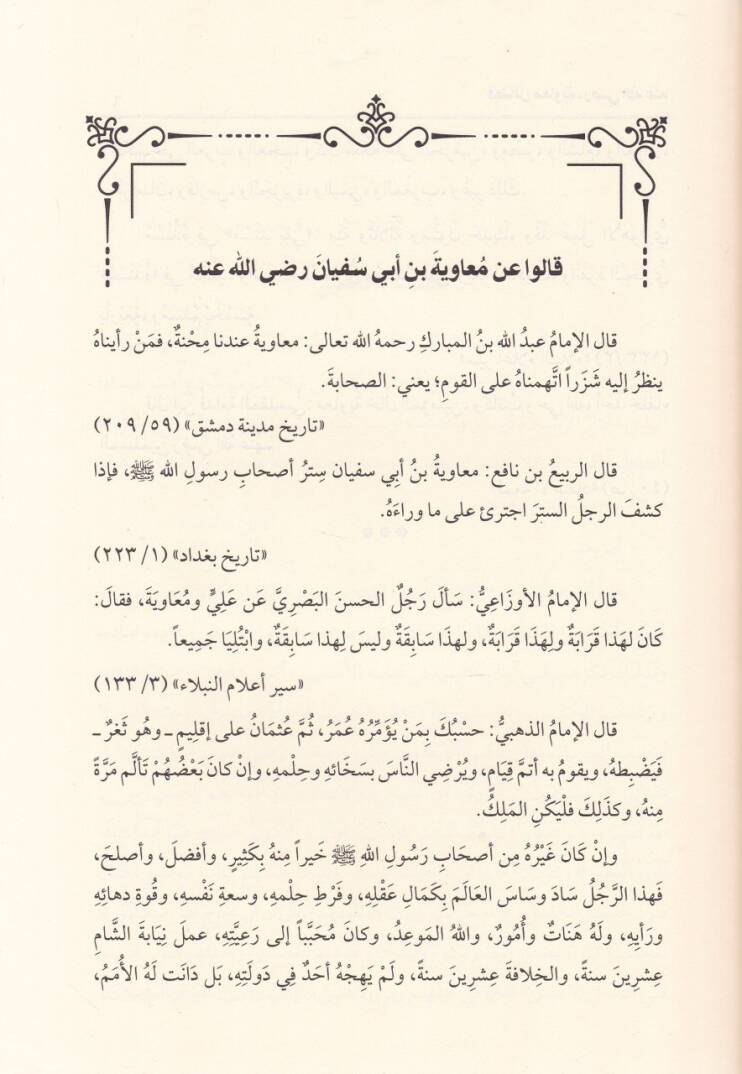 قالوا عن مُعاويةَ بنِ أبي سُفيانَ رضي الله عنه
قال الإمامُ عبدُ الله بنُ المباركِ رحمهُ الله تعالى: معاويةُ عندنا مِحْنةٌ، فمَنْ رأيناهُ
ينظرُ إليه شَزَراً اتَّهمناهُ على القومِ؛ يعني: الصحابةَ.
«تاريخ مدينة دمشق» (٥٩/ ٢٠٩)
قال الربيعُ بن نافع: معاويةُ بنُ أبي سفيان سِترُ أصحابِ رسولِ الله ﷺ، فإذا
كشفَ الرجلُ السترَ اجترئ على ما وراءَهُ.
«تاريخ بغداد» (١/ ٢٢٣)
قال الإمامُ الأوزَاعِيُّ: سَألَ رَجُلٌ الحسنَ البَصْرِيَّ عَن عَلِيٍّ ومُعَاوِيَةَ، فقالَ:
كَانَ لهَذا قَرَابَةٌ ولِهَذَا قَرَابَةٌ، ولهذَا سَابِقَةٌ وليسَ لِهذا سَابِقَةٌ، وابْتُلِيَا جَمِيعاً.
«سير أعلام النبلاء» (٣/ ١٣٣)
قال الإمامُ الذهبيُّ: حسْبُكَ بِمَنْ يُؤَمِّرُهُ عُمَرُ، ثُمَّ عُثمَانُ على إقليمٍ ـ وهُو ثَغرٌ ـ
فَيَضْبِطهُ، ويقومُ به أتمَّ قِيَامٍ، ويُرْضِي النَّاسَ بسَخَائهِ وحِلْمهِ، وإنْ كانَ بَعْضُهُمْ تَألَّم مَرَّةً
مِنهُ، وكذَلِكَ فلْيَكُنِ المَلِكُ.
وإنْ كَانَ غَيْرُهُ مِن أصحَابِ رَسُولِ اللهِ ﷺ خَيراً مِنهُ بِكَثِيرٍ، وأفضلَ، وأصلحَ،
فَهذا الرَّجُلُ سَادَ وسَاسَ العَالَمَ بِكَمَالِ عَقْلِهِ، وفَرْطِ حِلْمِهِ، وسعةِ نَفْسِهِ، وقُوةِ دهائِهِ
ورَأيِهِ، ولَهُ هَنَاتٌ وأُمُورٌ، واللهُ المَوعِدُ، وكانَ مُحَبَّباً إلى رَعِيَّتِهِ، عملَ نِيَابةَ الشَّامِ
عِشرِينَ سنةً، والخِلافةَ عِشرِينَ سنةً، ولَمْ يَهِجْهُ أحَدٌ فِي دَولَتِهِ، بَل دَانَت لَهُ الأُمَمُ،